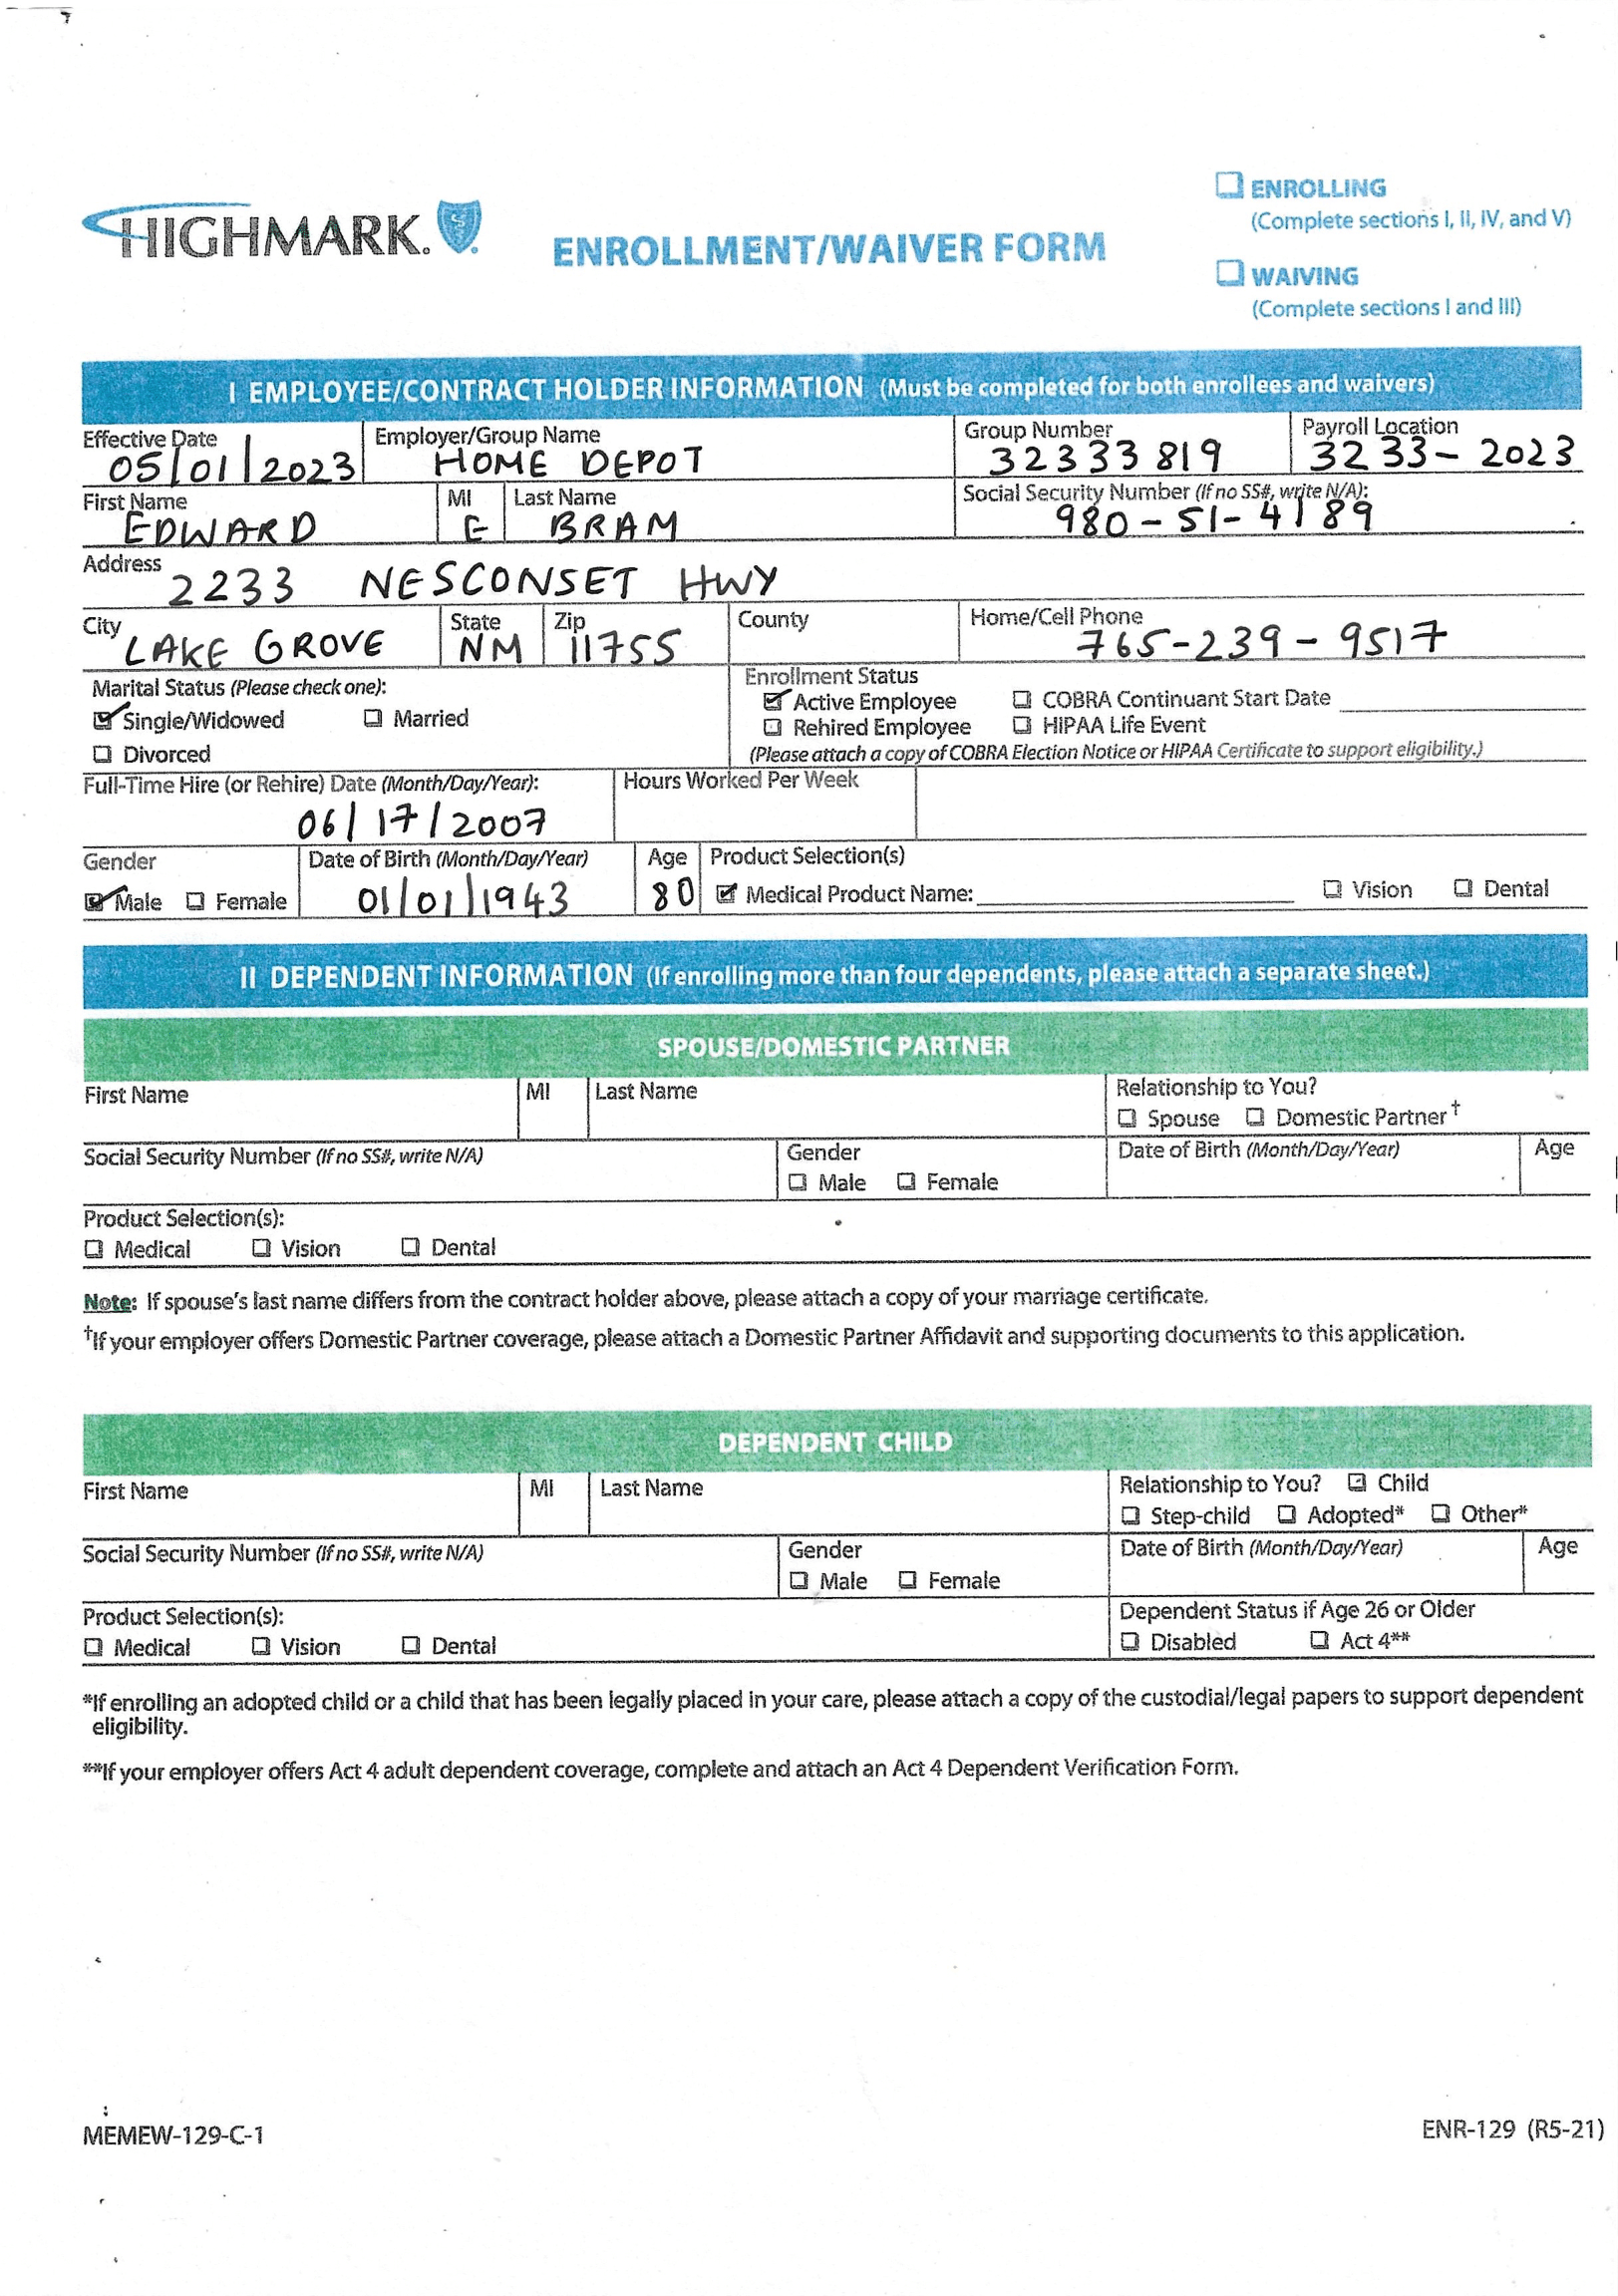 HIGHMARK.
ENROLLMENT/WAIVER FORM
❏ ENROLLING
(Complete sections I, II, IV, and V)
❏ WAIVING
(Complete sections I and III)
I EMPLOYEE/CONTRACT HOLDER INFORMATION (Must be completed for both enrollees and waivers)
Effective Date Employer/Group Name Group Number Payroll Location
05/01/2023 HOME DEPOT 32333819 3233-2023
First Name MI Last Name Social Security Number (If no SS#, write N/A):
EDWARD E BRAM 980-51-4189
Address
2233 NESCONSET HWY
City State Zip County Home/Cell Phone
LAKE GROVE NM 11755 765-239-9517
Marital Status (Please check one): Enrollment Status
☑ Single/Widowed ❏ Married ☑ Active Employee ❏ COBRA Continuant Start Date
❏ Divorced ❏ Rehired Employee ❏ HIPAA Life Event
(Please attach a copy of COBRA Election Notice or HIPAA Certificate to support eligibility.)
Full-Time Hire (or Rehire) Date (Month/Day/Year): Hours Worked Per Week
06/17/2007
Gender Date of Birth (Month/Day/Year) Age Product Selection(s)
☑ Male ❏ Female 01/01/1943 80 ☑ Medical Product Name: ❏ Vision ❏ Dental
II DEPENDENT INFORMATION (If enrolling more than four dependents, please attach a separate sheet.)
SPOUSE/DOMESTIC PARTNER
First Name MI Last Name Relationship to You?
❏ Spouse ❏ Domestic Partner†
Social Security Number (If no SS#, write N/A) Gender Date of Birth (Month/Day/Year) Age
❏ Male ❏ Female
Product Selection(s):
❏ Medical ❏ Vision ❏ Dental
Note: If spouse's last name differs from the contract holder above, please attach a copy of your marriage certificate.
†If your employer offers Domestic Partner coverage, please attach a Domestic Partner Affidavit and supporting documents to this application.
DEPENDENT CHILD
First Name MI Last Name Relationship to You? ❏ Child
❏ Step-child ❏ Adopted* ❏ Other*
Social Security Number (If no SS#, write N/A) Gender Date of Birth (Month/Day/Year) Age
❏ Male ❏ Female
Product Selection(s): Dependent Status if Age 26 or Older
❏ Medical ❏ Vision ❏ Dental ❏ Disabled ❏ Act 4**
*If enrolling an adopted child or a child that has been legally placed in your care, please attach a copy of the custodial/legal papers to support dependent
eligibility.
**If your employer offers Act 4 adult dependent coverage, complete and attach an Act 4 Dependent Verification Form.
MEMEW-129-C-1
ENR-129 (R5-21)